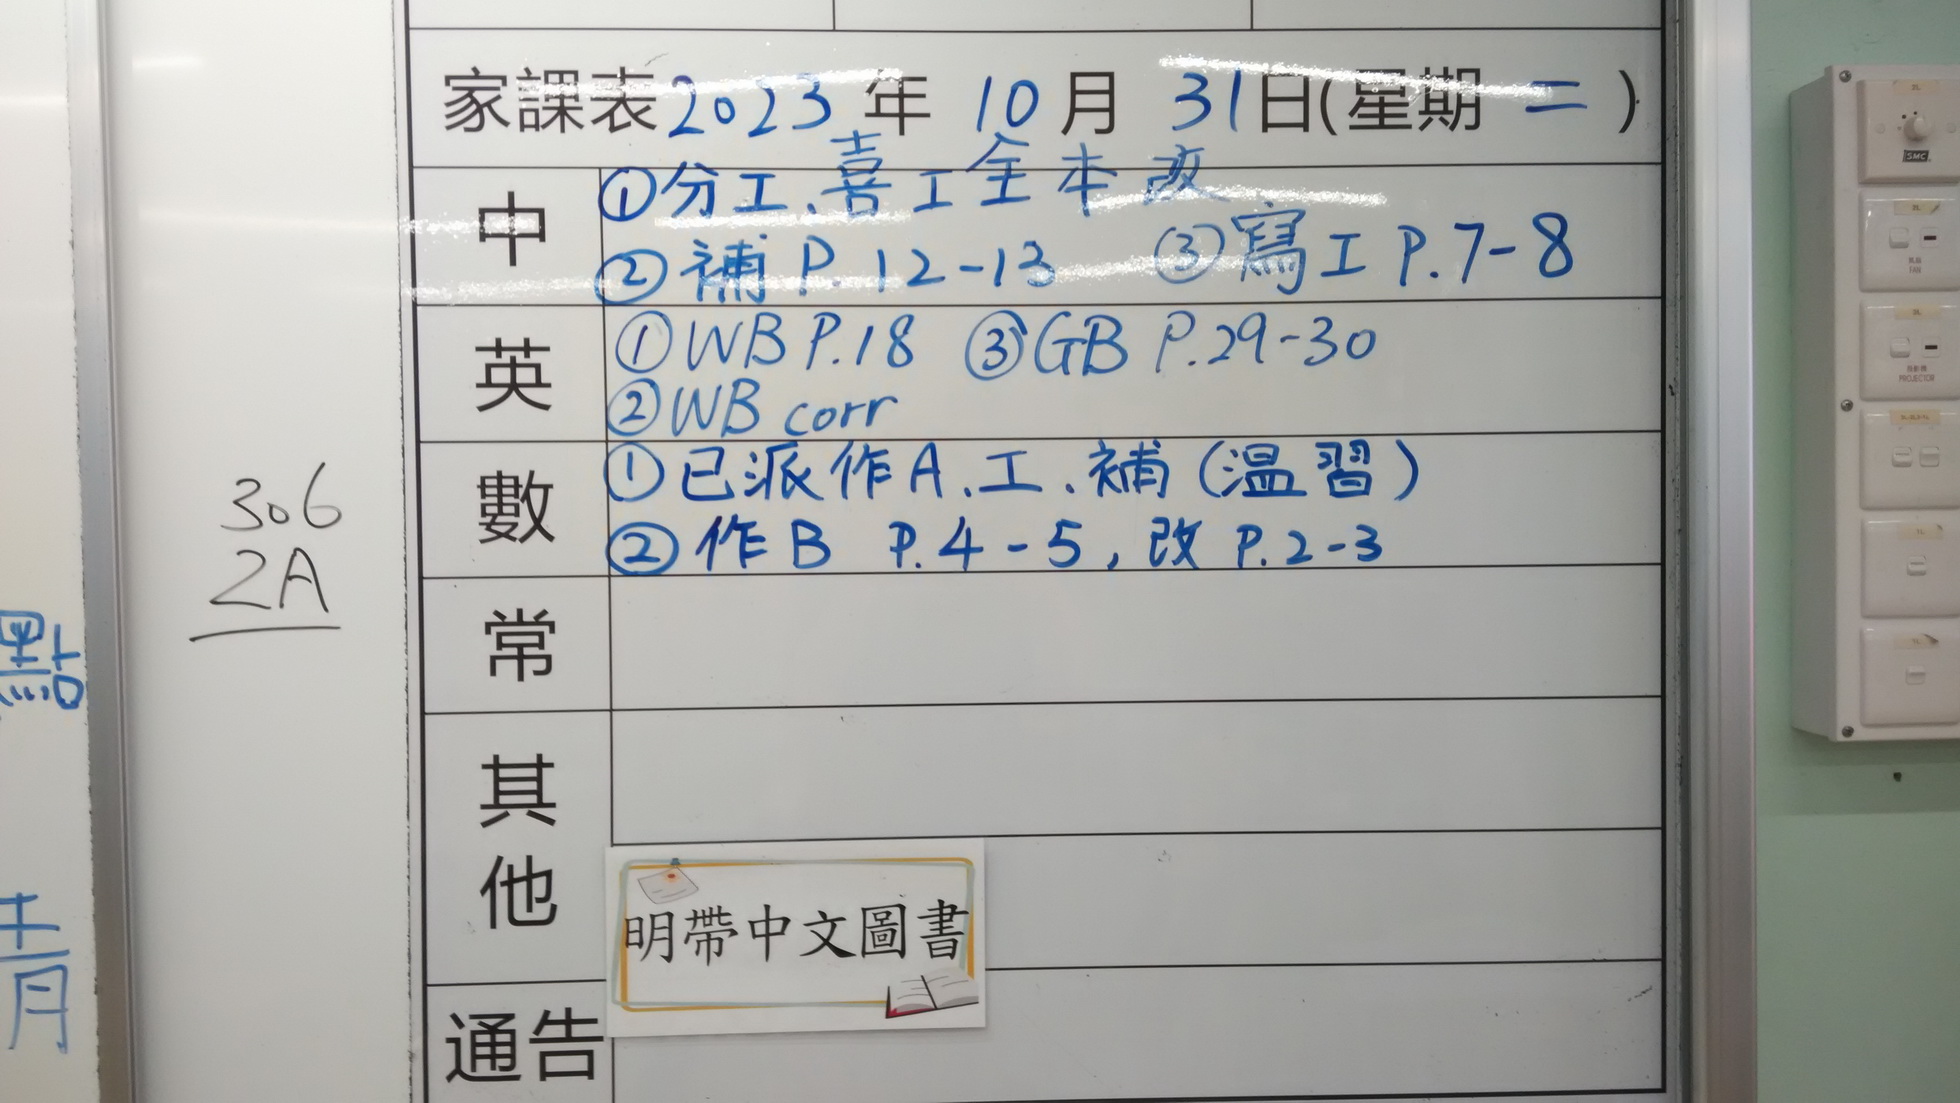 家課表 2023 年 10 月 31 日(星期 二 )
中
①分工、喜工全本改
②補 P.12-13 ③寫工 P.7-8
英
①WB P.18 ③GB P.29-30
②WB corr
數
①已派作A、工、補(溫習)
②作B P.4-5, 改 P.2-3
常
其他
明帶中文圖書
通告
306
2A
點
SMC
FAN
PROJECTOR